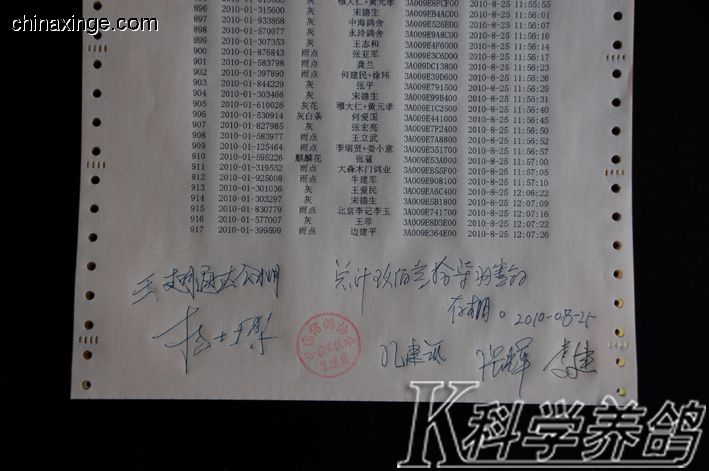 chinaxinge.com
896 2010-01-315600 灰 穆大仁+黄元孝 3A009E8FCF00 2010-8-25 11:55:55
897 2010-01-933868 灰 宋德生 3A009EB4AC00 2010-8-25 11:56:01
898 2010-01-570077 灰 中海鸽舍 3A009E526E00 2010-8-25 11:56:07
899 2010-01-307353 灰 永玲鸽舍 2010-8-25 11:56:10
900 2010-01-876843 雨点 王志和 3A009E4F6000 2010-8-25 11:56:14
901 2010-01-583798 雨点 张亚军 3A009E3C6D00 2010-8-25 11:56:17
902 2010-01-397890 雨点 龚兰 3A009DC13800 2010-8-25 11:56:26
903 2010-01-844229 灰 何建民+徐玮 3A009E39D600 2010-8-25 11:56:29
904 2010-01-303466 灰 张平 3A009E791500 2010-8-25 11:56:29
905 2010-01-610026 灰花 宋德生 3A009E99B400 2010-8-25 11:56:31
906 2010-01-530914 灰白条 穆大仁+黄元孝 3A009E1C2500 2010-8-25 11:56:40
907 2010-01-827985 灰 何爱国 3A009E441000 2010-8-25 11:56:45
908 2010-01-583977 雨点 张宏亮 3A009E7F2400 2010-8-25 11:56:50
909 2010-01-125464 雨点 王立武 3A009E7A8800 2010-8-25 11:56:52
910 2010-01-595226 麒麟花 李瑞贤+娄小意 3A009E351700 2010-8-25 11:56:53
911 2010-01-319552 雨点 张猛 3A009EB53F00 2010-8-25 11:57:00
912 2010-01-925008 雨点 大森木门鸽业 3A009EB55F00 2010-8-25 11:57:05
913 2010-01-301036 灰 牛建军 3A009E908100 2010-8-25 11:57:10
914 2010-01-303297 灰 王爱民 3A009EA6C400 2010-8-25 12:06:22
915 2010-01-830779 雨点 宋德生 3A009E5B1800 2010-8-25 12:07:09
916 2010-01-577007 灰 北京李记李玉 3A009E741700 2010-8-25 12:07:16
917 2010-01-399599 雨点 王菲 3A009E8D3E00 2010-8-25 12:07:22
边建平 3A009E364E00 2010-8-25 12:07:26
总计玖佰壹拾柒羽
存棚。2010-08-25
K科学养鸽